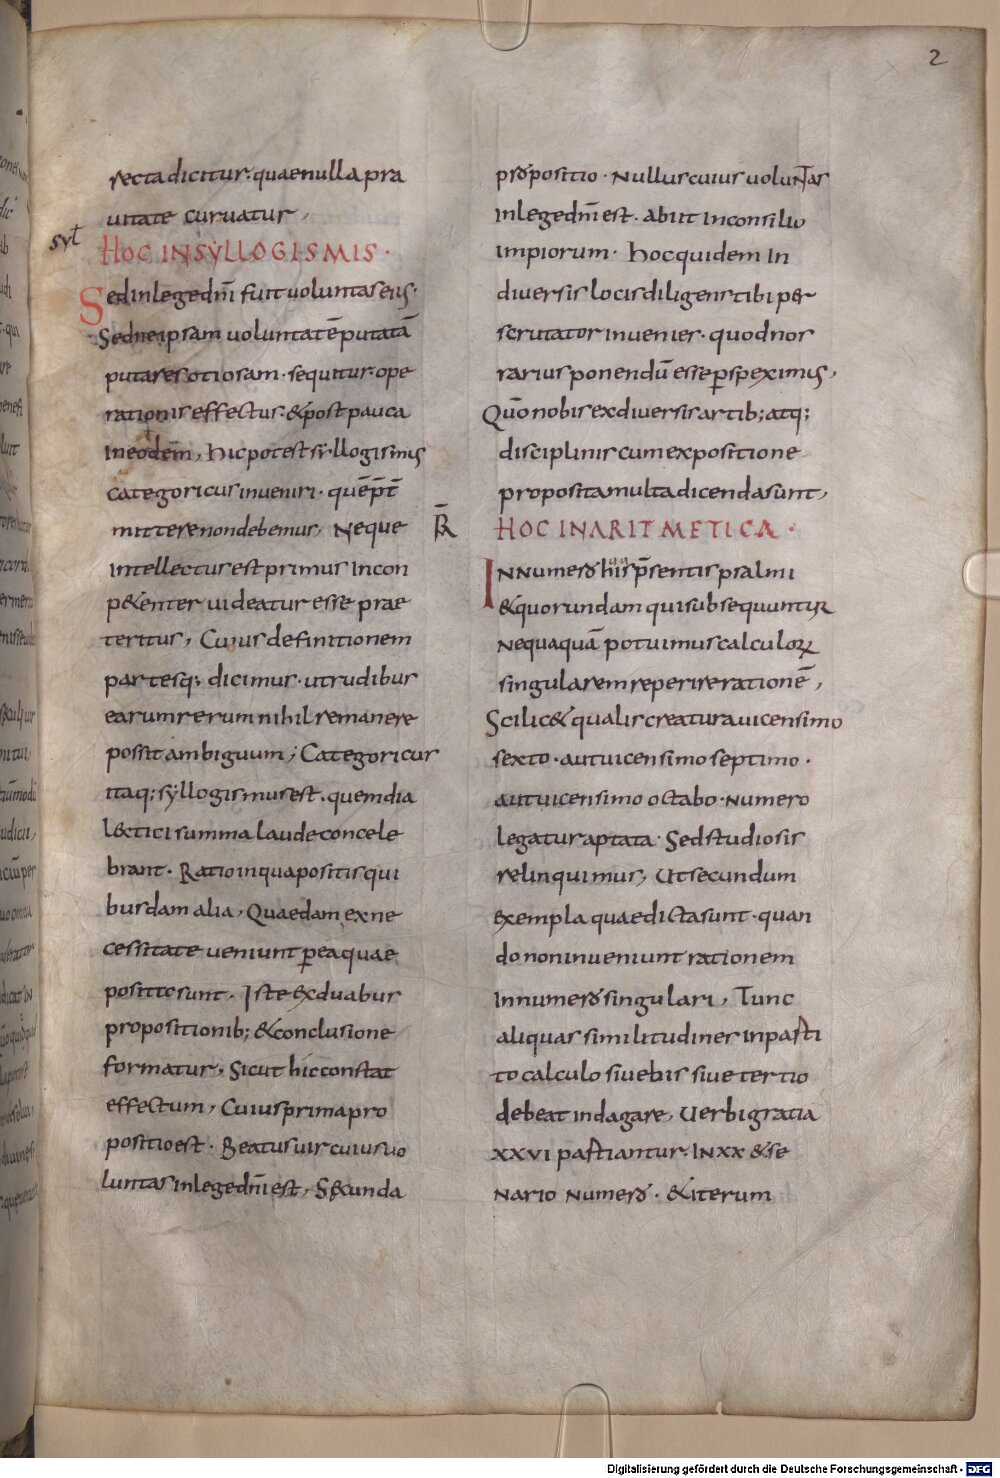 2
recta dicitur. quae nulla pra
uitate curuatur,
syl̄
HOC IN SYLLOGISMIS.
Sed in lege dn̄i fuit uoluntas eius.
Sed ne ipsam uoluntatē putatā
putares otiosam. sequitur. ope
rationis effectus. & post pauca
in eodem, hic potest syllogismus
categoricus inueniri. quē p̄t̄
mittere non debemus, Neque
intellectus est primus incon
p&enter uideatur esse prae
teritus, Cuius definitionem
partesq; dicimus. ut rudibus
earum rerum nihil remanere
possit ambiguum; Categoricus
itaq; syllogismus est. quem dia
l&tici summa laude concele
brant. Ratio in qua positis qui
busdam alia, Quaedam ex ne
cessitate ueniunt per ea quae
posite sunt. Iste ex duabus
propositionib; & conclusione
formatur, Sicut hic constat
effectum, Cuius prima pro
positio est. Beatus uir cuius uo
luntas in lege dn̄i est, S&unda
propositio. Nullus cuius uoluntas
in lege dn̄i est. abiit in consilio
impiorum. hoc quidem in
diuersis locis diligens tibi per
scrutator inuenies. quod nos
rarius ponendū esse perspeximus,
Qūo nobis ex diuersis artib; atq;
disciplinis cum expositione
proposita multa dicenda sunt,
R̄
HOC IN ARITMETICA.
IN Numero hius p̄sentis psalmi
& quorundam qui subsequuntur
Nequaquā potuimus calculorum
singularem reperire rationē,
Scilic& qualis creatura uicensimo
sexto. aut uicensimo septimo.
aut uicensimo octabo. Numero
legatur aptata. Sed studiosis
relinquimus, Ut secundum
exempla quae dicta sunt. quan
do non inueniunt rationem
in numero singulari, Tunc
aliquas similitudines in parti
to calculo siue bis siue tertio
debeat indagare, Uerbi gratia
XXVI partiantur. IN XX & se
Nario Numero. & iterum
Digitalisierung gefördert durch die Deutsche Forschungsgemeinschaft - DFG